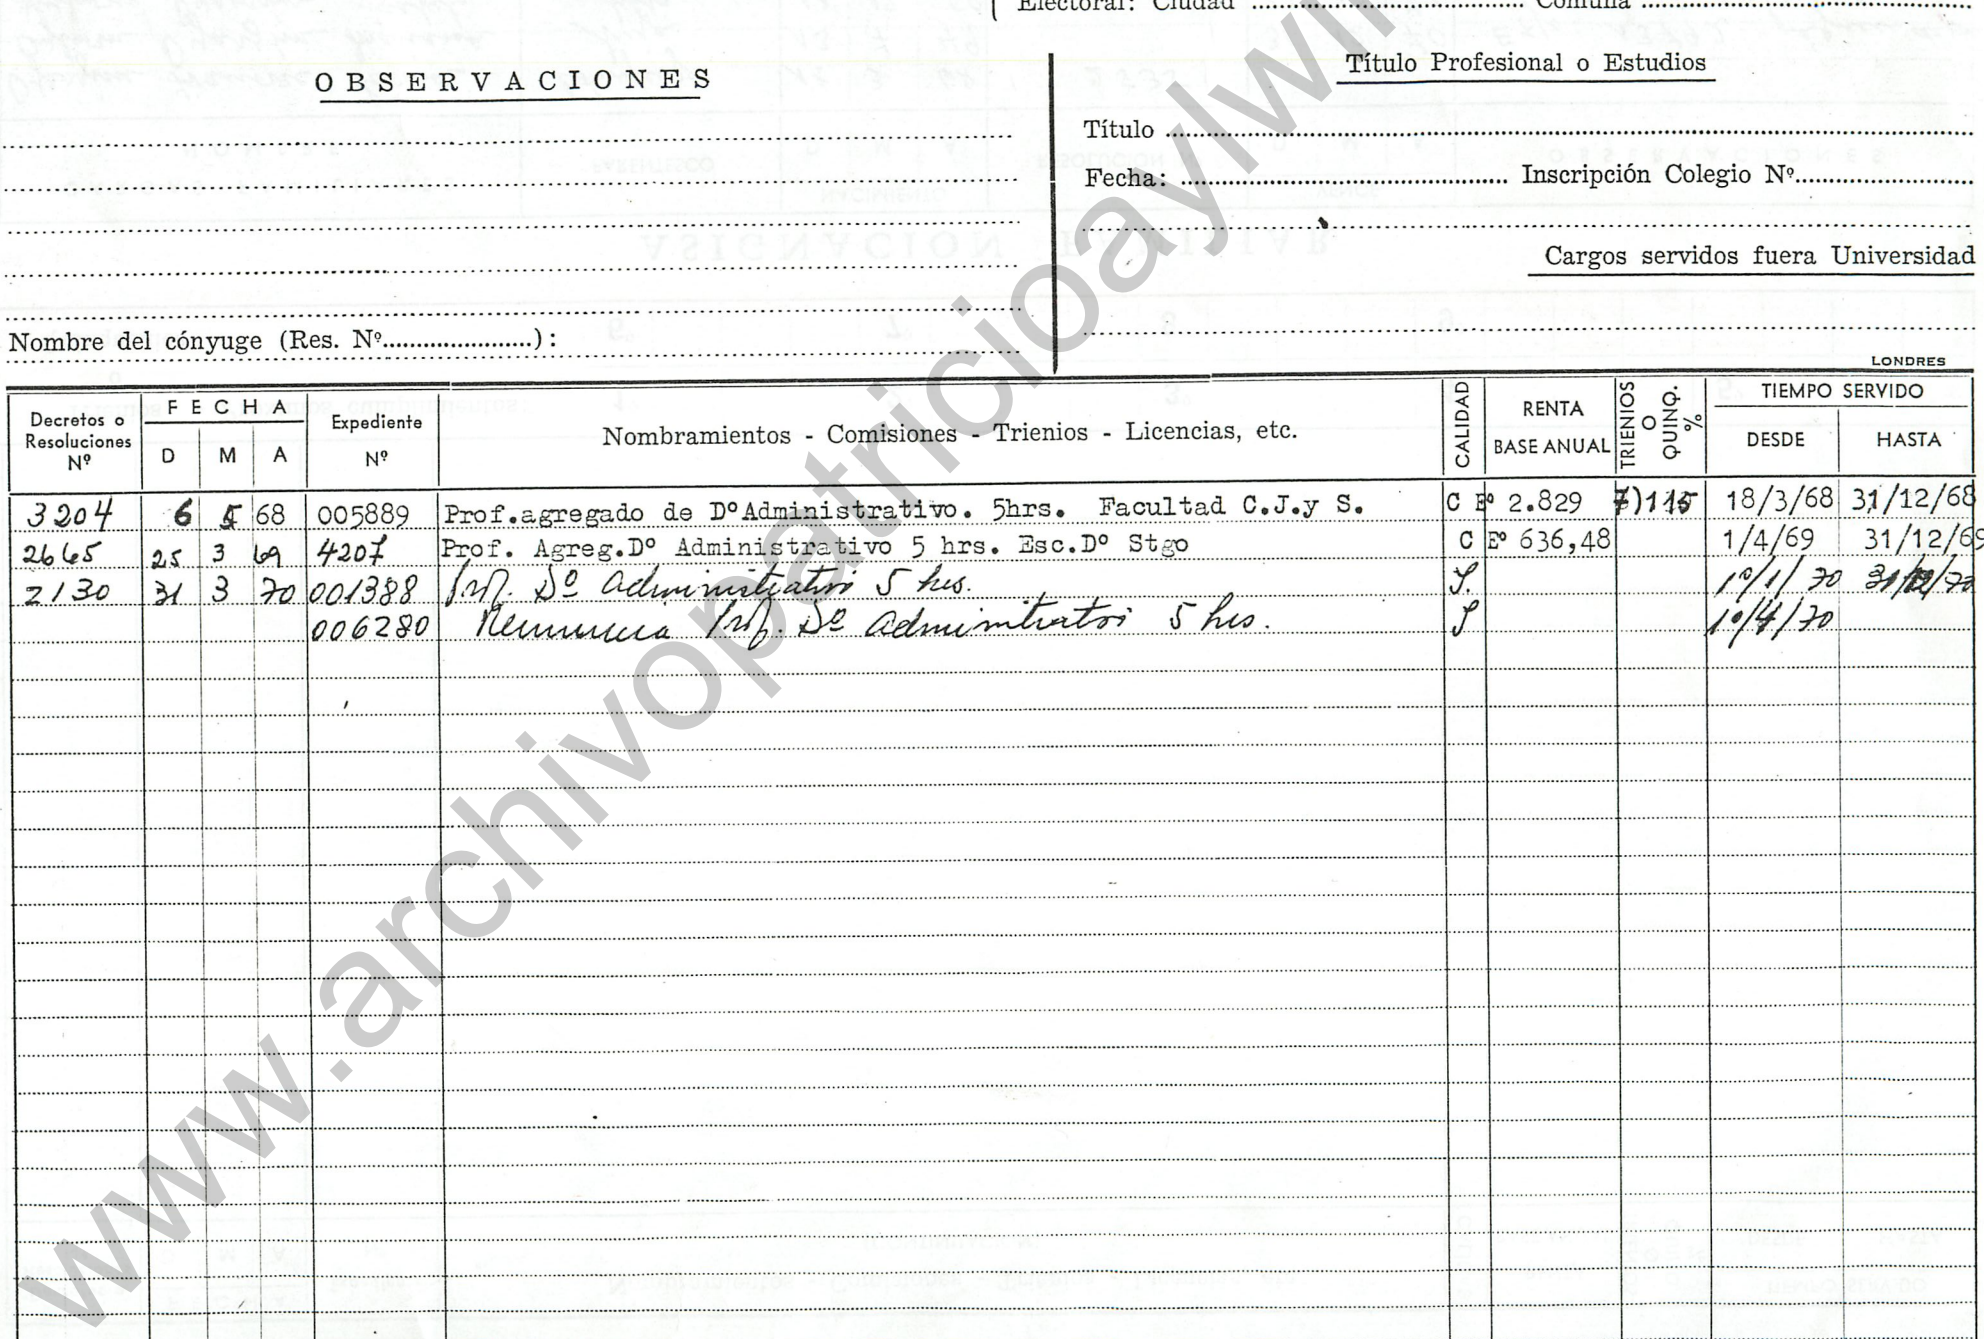 Electoral: Ciudad ........ Comuna ........
OBSERVACIONES
Título Profesional o Estudios
Título ........
Fecha: ........ Inscripción Colegio Nº........
Cargos servidos fuera Universidad
Nombre del cónyuge (Res. Nº........):
LONDRES
Decretos o Resoluciones Nº
FECHA
D M A
Expediente Nº
Nombramientos - Comisiones - Trienios - Licencias, etc.
CALIDAD
RENTA BASE ANUAL
TRIENIOS O QUINQ. %
TIEMPO SERVIDO
DESDE HASTA
3204 6 5 68 005889 Prof.agregado de DºAdministrativo. 5hrs. Facultad C.J.y S. C Eº 2.829 7)115 18/3/68 31/12/68
2665 25 3 69 4207 Prof. Agreg.Dº Administrativo 5 hrs. Esc.Dº Stgo C Eº 636,48 1/4/69 31/12/69
2130 31 3 70 001388 Prof. Dº Administrativo 5 hrs. S. 1º/1/70 31/12/70
006280 Renuncia Prof. Dº Administrativo 5 hrs. S 1º/4/70
www.archivopatricioaylwin